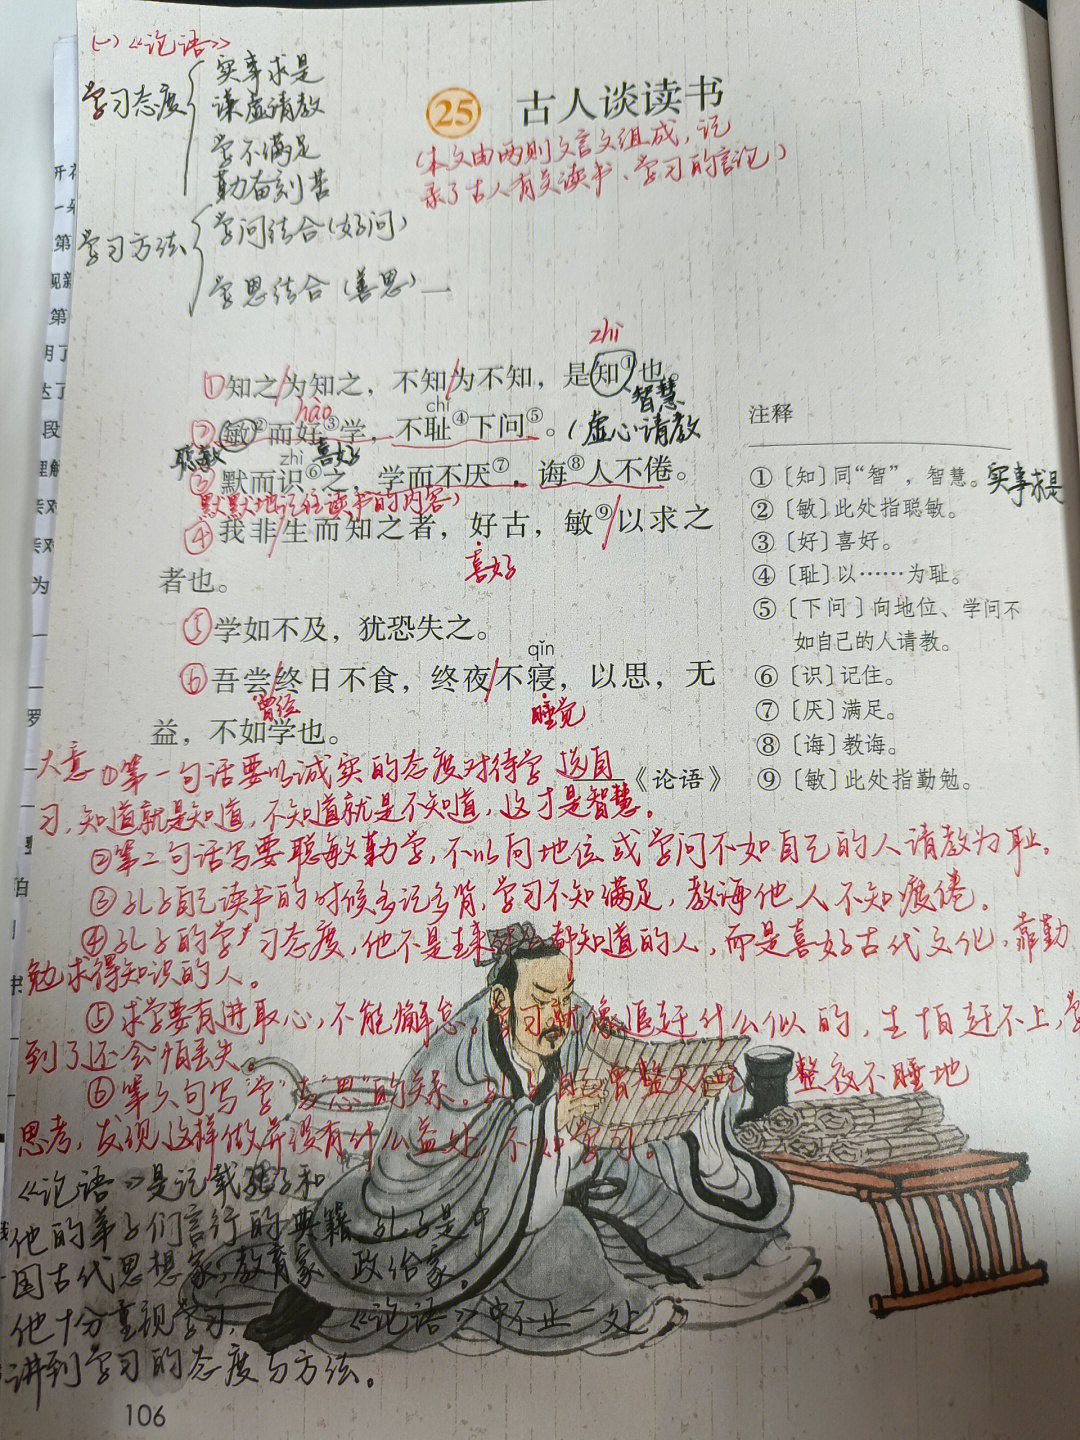 (一)《论语》
学习态度
实事求是
谦虚请教
学不满足
勤奋刻苦
学习方法
学问结合(好问)
学思结合(善思)
25 古人谈读书
(本文由两则文言文组成,记
录了古人有关读书、学习的言论)
zhì
①知之/为知之,不知/为不知,是知①/也。
智慧
hào chǐ
②敏②而好③学,不耻④下问⑤。(虚心请教
聪敏 zhì 喜好
③默而识⑥之,学而不厌⑦,诲⑧人不倦。
默默地记住读书的内容)
④我非/生而知之者,好古,敏⑨/以求之
者也。
喜好
⑤学如不及,犹恐失之。
qǐn
⑥吾尝/终日不食,终夜/不寝,以思,无
曾经 睡觉
益,不如学也。
选自——《论语》
注释
①〔知〕同“智”,智慧。实事求是
②〔敏〕此处指聪敏。
③〔好〕喜好。
④〔耻〕以……为耻。
⑤〔下问〕向地位、学问不
如自己的人请教。
⑥〔识〕记住。
⑦〔厌〕满足。
⑧〔诲〕教诲。
⑨〔敏〕此处指勤勉。
大意①第一句话要以诚实的态度对待学
习,知道就是知道,不知道就是不知道,这才是智慧。
②第二句话写要聪敏勤学,不以向地位或学问不如自己的人请教为耻。
③孔子自己读书的时候多记多背,学习不知满足,教诲他人不知疲倦。
④孔子的学习态度,他不是生来就知道的人,而是喜好古代文化,靠勤
勉求得知识的人。
⑤求学要有进取心,不能懈怠。学习就像追赶什么似的,生怕赶不上,学
到了还会怕丢失。
⑥第六句写“学”与“思”的关系。曾整天不吃 整夜不睡地
思考,发现这样做并没有什么益处,不如学习。
《论语》是记载孔子和
他的弟子们言行的典籍 孔子是中
国古代思想家,教育家 政治家。
他十分重视学习,《论语》中不止一处
讲到学习的态度与方法。
106